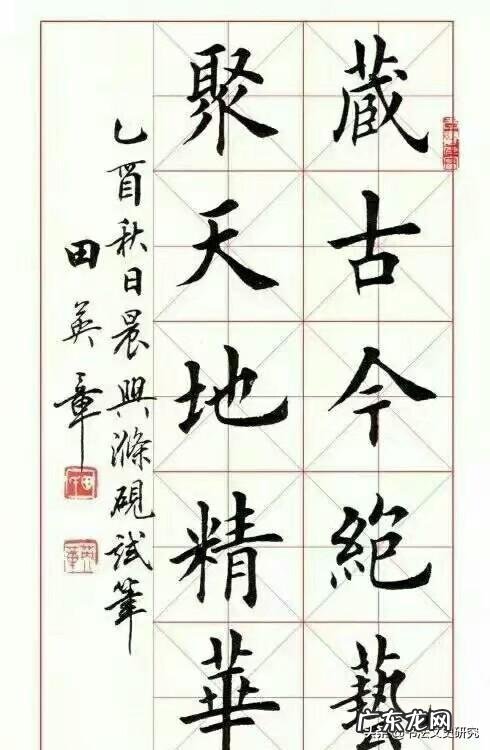 藏古今絕藝
聚天地精華
乙酉秋日晨興滌硯試筆
田英章
广东龙网
头条@书法文史研究